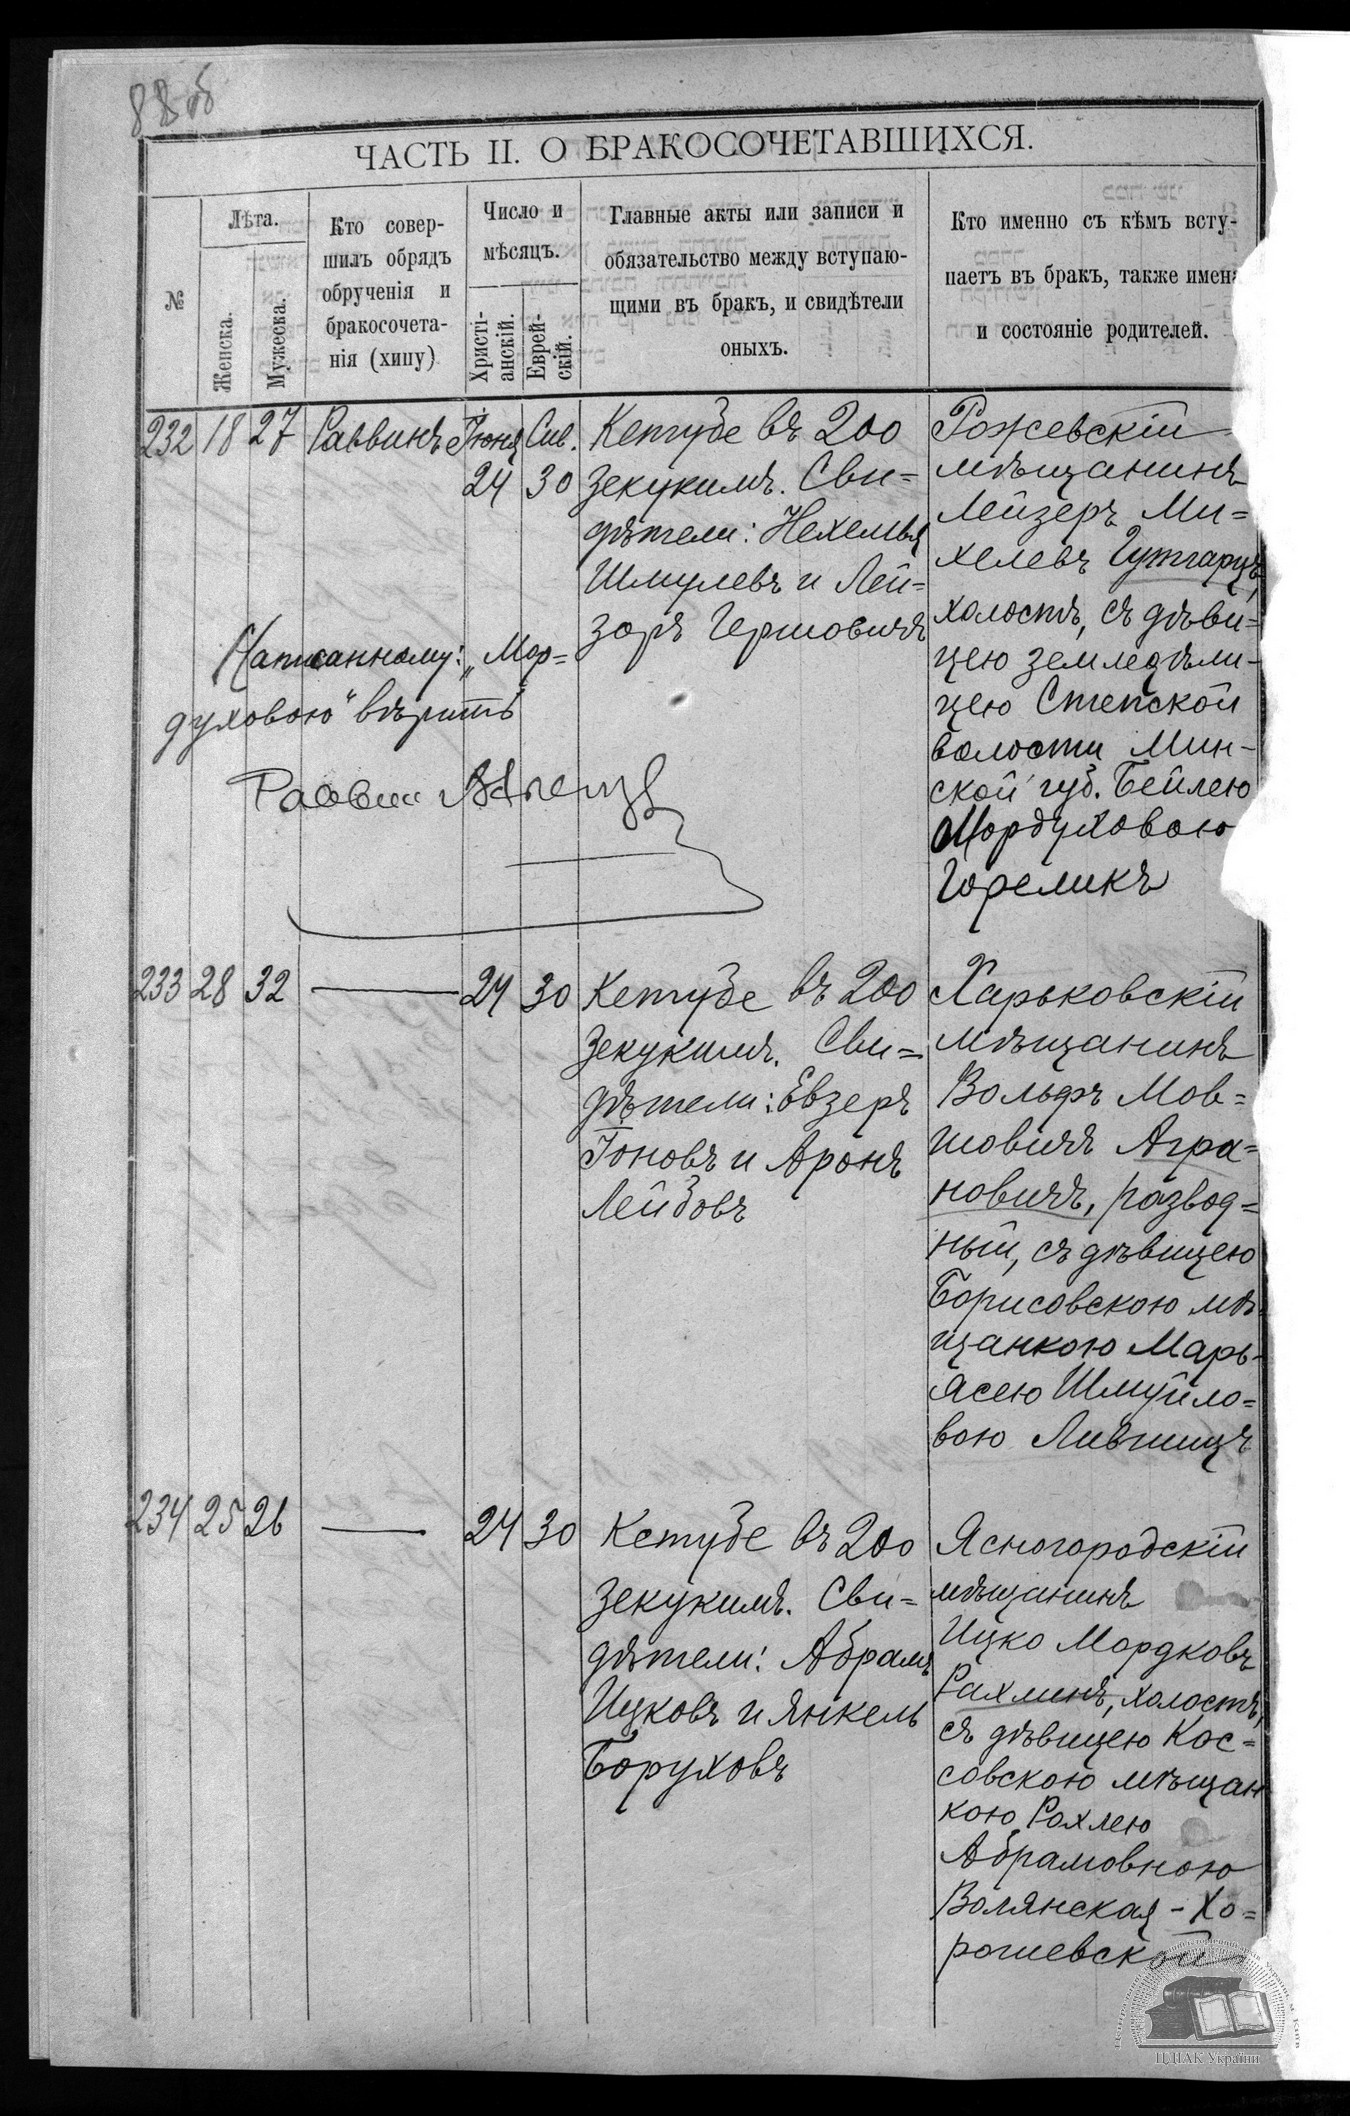 88об
ЧАСТЬ II. О БРАКОСОЧЕТАВШИХСЯ.
№
Лѣта.
Женска.
Мужеска.
Кто совер-
шилъ обрядъ
обрученія и
бракосочета-
нія (хипу)
Число и
мѣсяцъ.
Христі-
анскій.
Еврей-
скій.
Главные акты или записи и
обязательство между вступаю-
щими въ бракъ, и свидѣтели
оныхъ.
Кто именно съ кѣмъ всту-
паетъ въ бракъ, также имена
и состояніе родителей.
232 18 27 Раввинъ Іюня 24 Сив. 30
Кетубе въ 200
зекукимъ. Сви-
дѣтели: Нехемья
Шмулевъ и Лей-
зоръ Гершовичъ
Рожевскій
мѣщанинъ
Лейзеръ Ми-
хелевъ Гутгарцъ,
холостъ, съ дѣви-
цею земледѣли-
цею Степской
волости Мин-
ской губ. Бейлею
Мордуховою
Гореликъ
Написанному: „Мор-
духовою" вѣрить
Раввинъ
233 28 32 — 24 30
Кетубе въ 200
зекукимъ. Сви-
дѣтели: Евзеръ
Гоновъ и Аронъ
Лейбовъ
Харьковскій
мѣщанинъ
Вольфъ Мов-
шовичъ Агра-
новичъ, развод-
ный, съ дѣвицею
Борисовскою мѣ-
щанкою Марь-
ясею Шмуйло-
вою Лившицъ
234 25 26 — 24 30
Кетубе въ 200
зекукимъ. Сви-
дѣтели: Абрамъ
Ицковъ и Янкель
Боруховъ
Ясногородскій
мѣщанинъ
Ицко Мордковъ
Рахминъ, холостъ,
съ дѣвицею Кос-
совскою мѣщан
кою Рохлею
Абрамовною
Волянская-Хо-
рошевской
ЦДІАК України